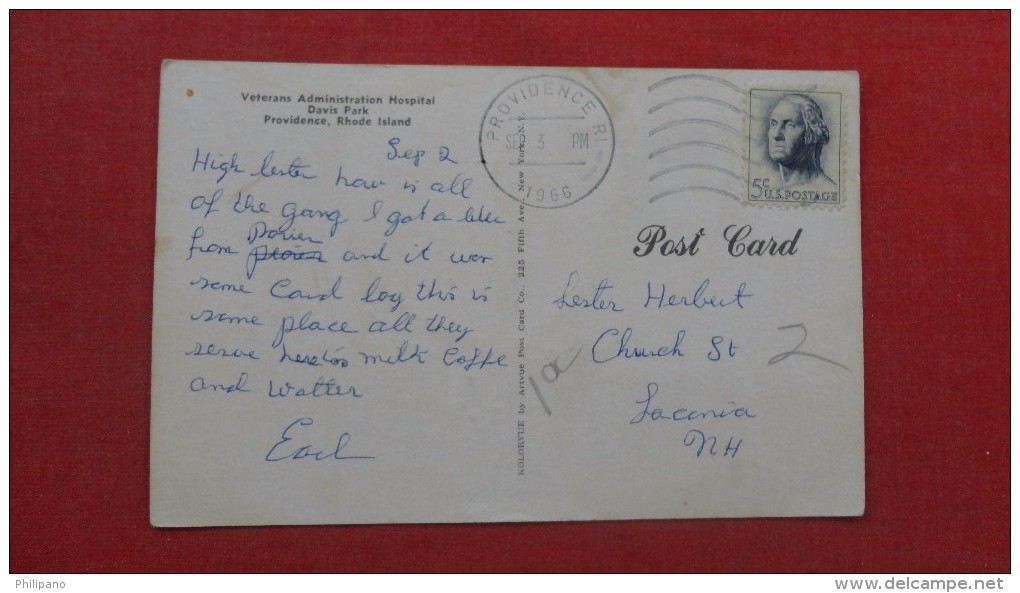 Veterans Administration Hospital
Davis Park
Providence, Rhode Island
Sep 2
High Lester how is all
of the gang I got a letter
from
and it wer
some Card boy this is
some place all they
serve here is milk Coffe
and watter
Earl
KOLORVUE by Artvue Post Card Co., 225 Fifth Ave., New York, N.Y.
PROVIDENCE, RI
SEP 3 PM
1966
5c
U.S. POSTAGE
Post Card
Lester Herbert
Church St
Laconia
NH
2
10
Philipano
www.delcampe.net